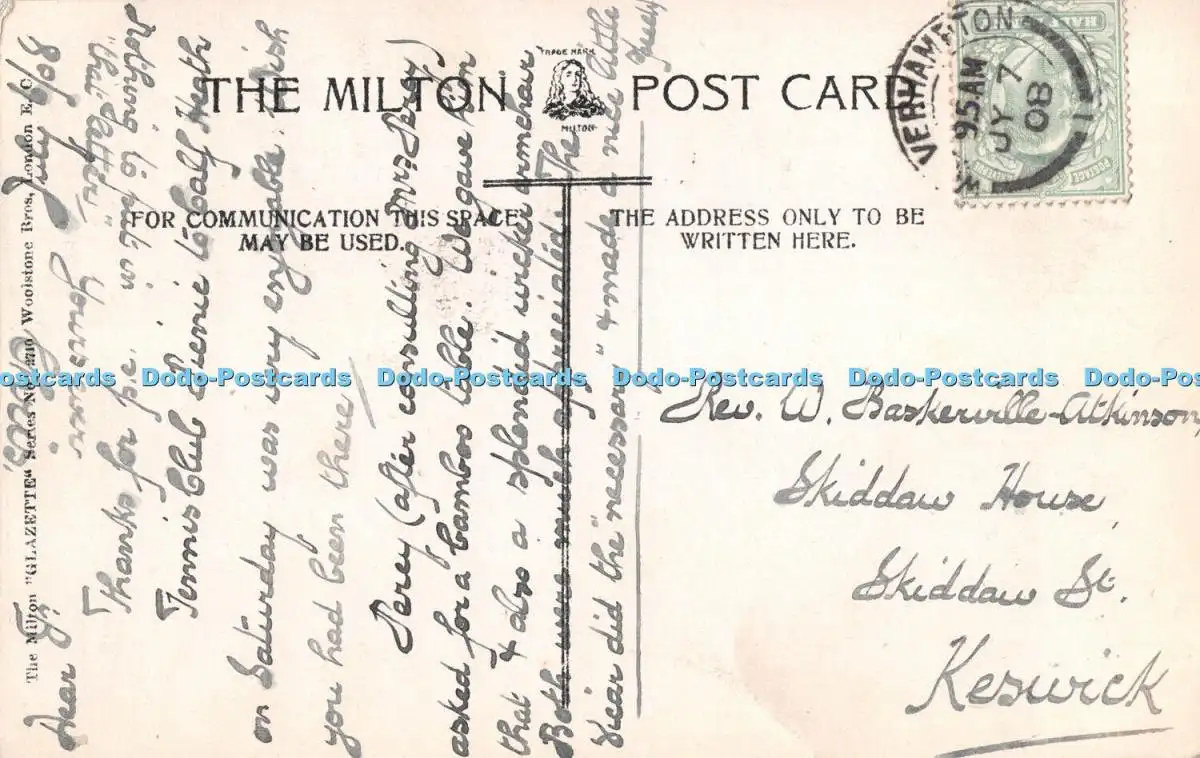 THE MILTON POST CARD
TRADE MARK
MILTON
FOR COMMUNICATION THIS SPACE
MAY BE USED.
THE ADDRESS ONLY TO BE
WRITTEN HERE.
The Milton "GLAZETTE" Series No. Woolstone Bros., London E.C.
VERHAMPTON
9 5 AM
JY 7
08
Rev. W. Baskerville-Atkinson
Skiddaw House,
Skiddaw St.
Keswick
July 8/08
Dear
Thanks for p.c. Nothing to put in
"that letter"
Tennis Club Picnic to Calf Heath
on Saturday was very enjoyable. Wish
you had been there
Percy (after consulting Mrs Percy)
asked for a bamboo table. We gave him
that & also a splendid wicker armchair
Both were much appreciated. The
Vicar did the "necessary" & made a nice little
Yours ever
Dodo-Postcards Dodo-Postcards Dodo-Postcards Dodo-Postcards Dodo-Postcards Dodo-Postcards